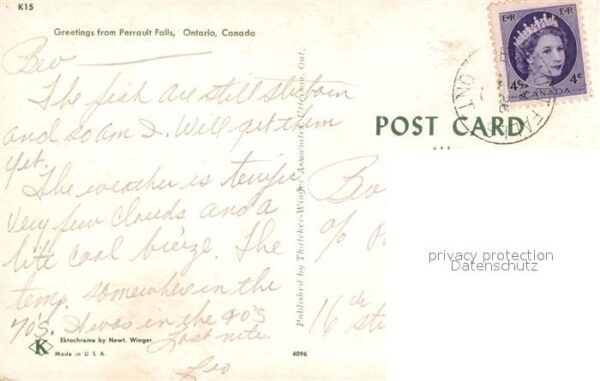 K15
Greetings from Perrault Falls, Ontario, Canada
Bev
The fish are still stuborn
and so am I. Will get them
yet.
The weather is terrific
Very few clouds and a
lite cool brieze. The
temp. somewhere in the
70's. It was in the 40's
Last nite.
Leo
K
Ektachrome by Newt. Winger
Made in U S A
4096
Published by Thatcher-Winger Associates, Ont.
POST CARD
Bev
%
16th
E R
E R
4c
4c
CANADA
FALLS
ONT
privacy protection
Datenschutz